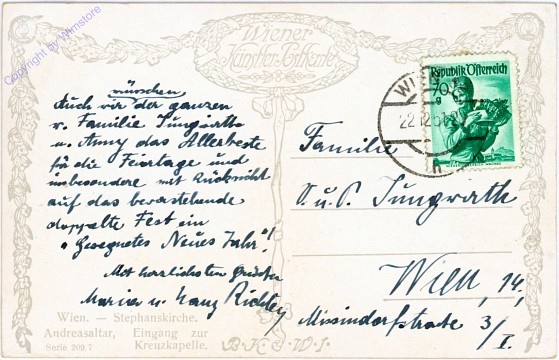 Copyright by Wimstore
Wiener
Künstler-Postkarte
wünschen
Auch wir der ganzen
v. Familie Jungwirth
u. Anny das Allerbeste
für die Feiertage und
insbesondere mit Rücksicht
auf das bevorstehende
doppelte Fest ein
"Gesegnetes Neues Jahr"!
Mit herzlichsten Grüssen
Maria u. Hanz
Wien. — Stephanskirche.
Andreasaltar, Eingang zur
Kreuzkapelle.
Serie 209,7
B.K.W.I.
Republik Österreich
70
g
WIEN
22.12.51
Familie
J. u. P. Jungwirth
Wien, 14,
Missindorfstrate 3/I.